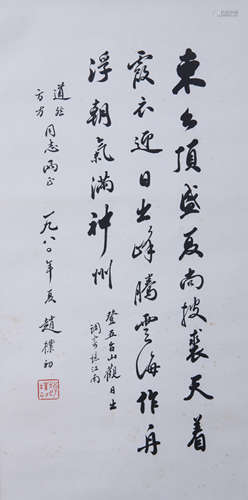 東台頂盛夏尚披裘天着
霞衣迎日出峰騰雲海作舟
浮朝氣滿神州
登五台山觀日出
調寄憶江南
道
方方
同志兩正
一九八〇年夏
趙樸初